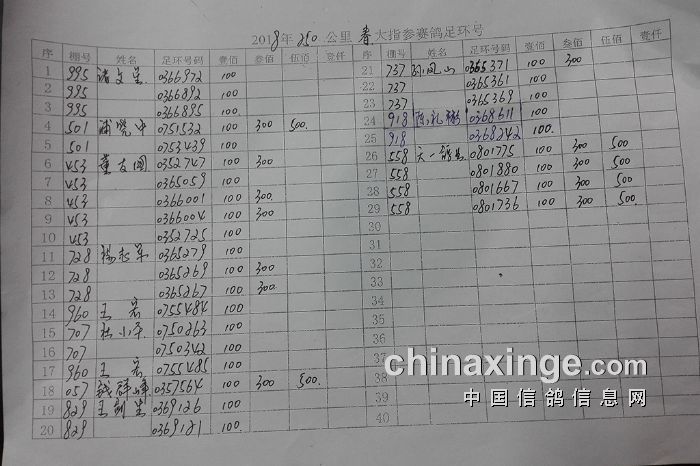 2018年 250 公里 春 大指参赛鸽足环号
序 棚号 姓名 足环号码 壹佰 叁佰 伍佰 壹仟
1 995 0366972 100
2 995 0366892 100
3 995 0366895 100
4 501 浦晓中 0751532 100 300 500
5 501 0753439 100
6 453 董友国 0352747 100 300
7 453 0365059 100
8 453 0366001 100 300
9 453 0366004 100 300
10 453 0352725 100
11 728 杨志军 0365279 100
12 728 0365269 100 300
13 728 0365267 100 300
14 960 王岩 0755484 100
15 707 杜小平 0750263 100
16 707 0750342 100
17 960 王岩 0755485 100
18 057 钱群峰 0357564 100 300 500
19 829 王 0369126 100
20 829 0369121 100
序 棚号 姓名 足环号码 壹佰 叁佰 伍佰 壹仟
21 737 孙凤山 0365371 100 300
22 737 0365361 100
23 737 0365369 100
24 918 陈礼 0368611 100
25 918 0368242 100
26 558 天一 0801775 100 300 500
27 558 0801880 100 300 500
28 558 0801667 100 300 500
29 558 0801736 100 300 500
30
31
32
33
34
35
36
37
38
39
40
chinaxinge.com
中国信鸽信息网